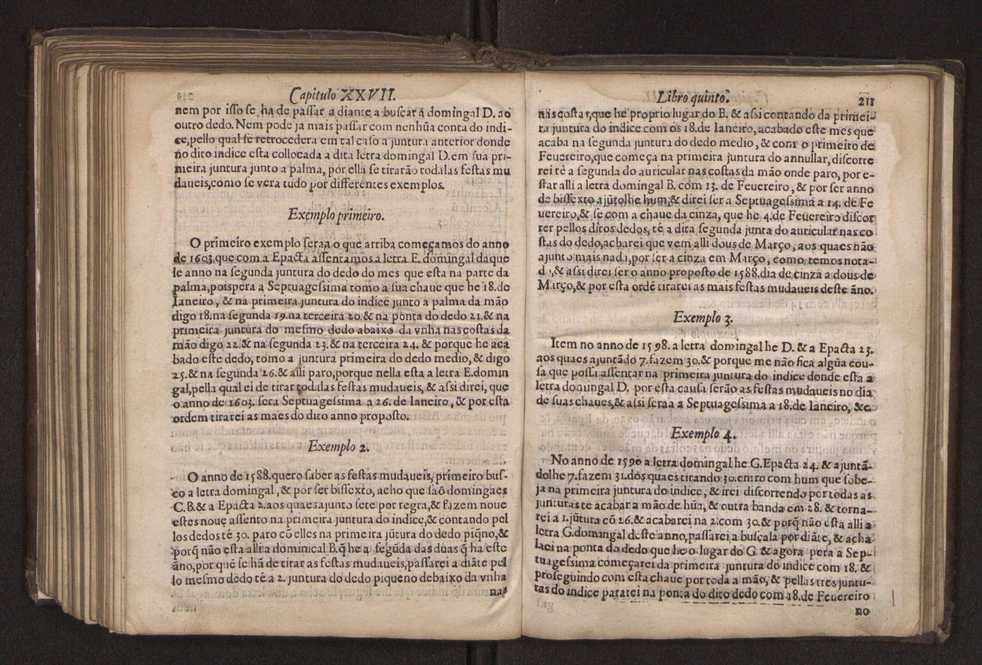 Capitulo XXVII.
nem por isso se ha de passar a diante a buscar a domingal D. ao
outro dedo. Nem pode ja mais passar com nenhũa conta do indi-
ce, pello qual se retrocedera em tal caso a juntura anterior donde
no dito indice esta collocada a dita letra domingal D. em sua pri-
meira juntura junto a palma, por ella se tirarão todalas festas mu
daueis, como se vera tudo por differentes exemplos.
Exemplo primeiro.
O primeiro exemplo seraa o que arriba começamos do anno
de 1603. que com a Epacta assentamos a letra E. domingal daque
le anno na segunda juntura do dedo do mes que esta na parte da
palma, pois pera a Septuagessima tomo a sua chaue que he 18. de
Ianeiro, & na primeira juntura do indice junto a palma da mão
digo 18. na segunda 19. na terceira 20. & na ponta do dedo 21. & na
primeira juntura do mesmo dedo abaixo da vnha nas costas da
mão digo 22. & na segunda 23. & na terceira 24. & porque he aca
bado este dedo, tomo a juntura primeira do dedo medio, & digo
25. & na segunda 26. & alli paro, porque nella esta a letra E. domin
gal, pella qual ei de tirar todalas festas mudaueis, & assi direi, que
o anno de 1603. sera Septuagessima a 26. de Ianeiro, & por esta
ordem tirarei as maes do dito anno proposto.
Exemplo 2.
O anno de 1588. quero saber as festas mudaueis, primeiro bus-
co a letra domingal, & por ser bissexto, acho que saõ domingaes
C. B. & a Epacta 2. aos quaes ajunto sete por regra, & fazem noue
estes noue assento na primeira juntura do indice, & contando pel
los dedos tè 30. paro cõ elles na primeira jũtura do dedo piq̃no, &
porq̃ não esta alli a dominical B. q̃ he a segũda das duas q̃ ha este
ãno, por que se hã de tirar as festas mudaueis, passarei a diãte pel
lo mesmo dedo tè a 2. juntura do dedo piqueno debaixo da vnha
nas
Libro quinto. 211
nas costas, que he proprio lugar do B. & assi contando da primei-
ra juntura do indice com os 18. de Ianeiro, acabado este mes que
acaba na segunda juntura do dedo medio, & com o primeiro de
Feuereiro, que começa na primeira juntura do annullar, discorre
rei tè a segunda do auricular nas costas da mão onde paro, por e-
star alli a letra domingal B. com 13. de Feuereiro, & por ser anno
de bissexto ajũtolhe hum, & direi ser a Septuagessima a 14. de Fe
uereiro, & se com a chaue da cinza, que he 4. de Feuereiro discor
rer pellos ditos dedos, tè a dita segunda junta do auricular nas co
stas do dedo, acharei que vem alli dous de Março, aos quaes não
ajunto mais nada, por ser a cinza em Março, como temos nota-
do, & assi direi ser o anno proposto de 1588. dia de cinza a dous de
Março, & por esta ordẽ tirarei as mais festas mudaueis deste ãno.
Exemplo 3.
Item no anno de 1598. a letra domingal he D. & a Epacta 23.
aos quaes ajuntãdo 7. fazem 30. & porque me não fica algũa cou-
sa que possa assentar na primeira juntura do indice donde esta a
letra domingal D. por esta causa serão as festas mudaueis no dia
de suas chaues, & assi seraa a Septuagessima a 18. de Ianeiro, &c.
Exemplo 4.
No anno de 1590 a letra domingal he G. Epacta 24. & ajuntã-
dolhe 7. fazem 31. dos quaes tirando 30. entro com hum que sobe-
ja na primeira juntura do indice, & irei discorrendo por todas as
junturas te acabar a mão de hũa, & outra banda em 28. & torna-
rei a 1. jũtura cõ 26. & acabarei na 2. com 30. & porq̃ não esta alli a
letra G. domingal deste anno, passarei a buscala por diãte, & acha
laei na ponta do dedo que he o lugar do G. & agora pera a Sep-
tuagessima começarei da primeira juntura do indice com 18. &
proseguindo com esta chaue por toda a mão, & pellas tres juntu-
ras do indice pararei na ponta do dito dedo com 18. de Feuereiro
no